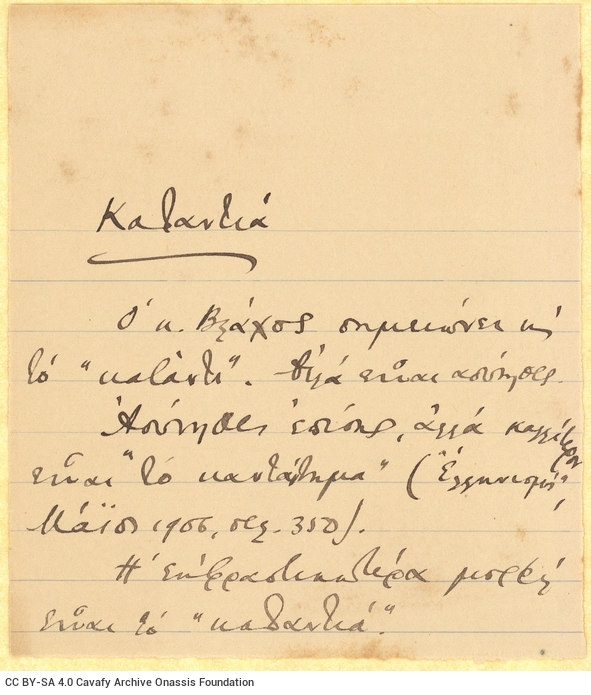 Καταντιά
Ὁ κ. Βλάχος σημειώνει κι
τό "κατάντι". Ἀλλά εἶναι ἀσύνηθες.
Ἀσύνηθες ἐπίσης, ἀλλά καλλίτερον
εἶναι "τό καντάτημα" ("Ἑλληνισμός"
Μάϊος 1906, σελ. 350).
Ἡ ἐκφραστικωτέρα μορφή
εἶναι τό "καταντιά."
CC BY-SA 4.0 Cavafy Archive Onassis Foundation